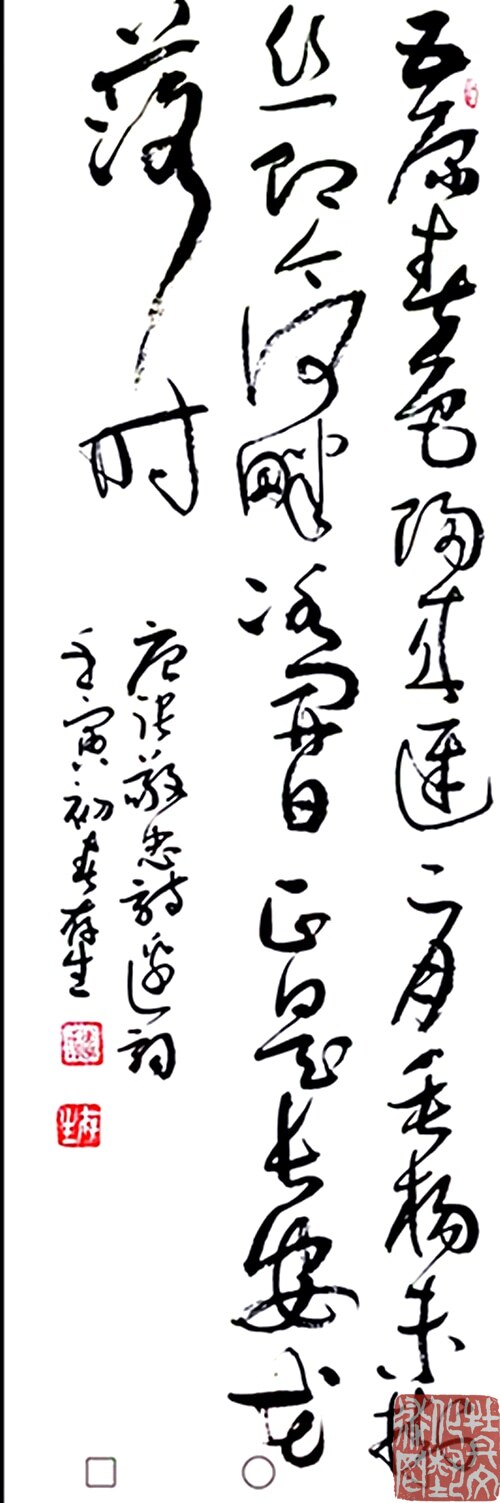 五原春色陶来迟二月垂杨未挂
丝即今河畔冰开日正是长安花
落时
唐张敬忠诗边词
壬寅初春存生
存生